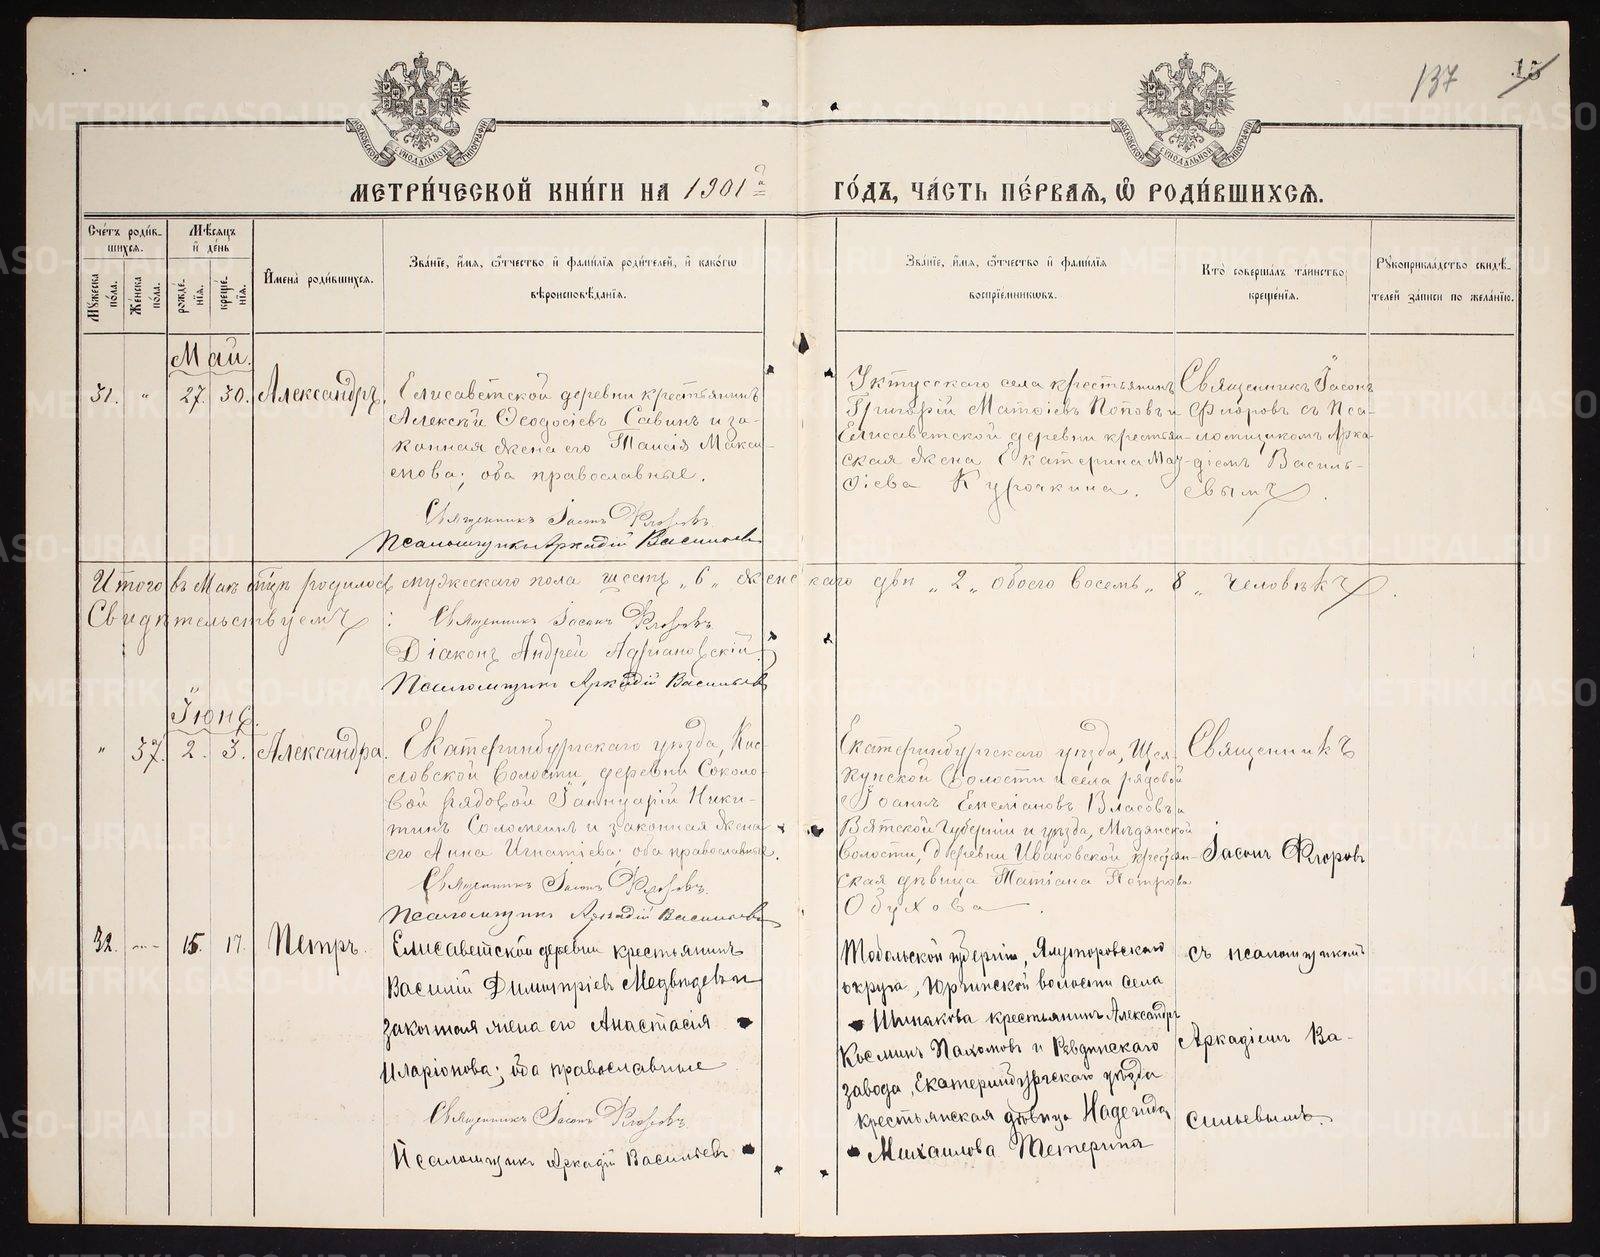 137 15
МОСКОВСКОЙ СѴНОДАЛЬНОЙ ТИПОГРАФІИ
МОСКОВСКОЙ СѴНОДАЛЬНОЙ ТИПОГРАФІИ
МЕТРИ́ЧЕСКОЙ КНИ́ГИ НА 1901й ГО́ДЪ, ЧА́СТЬ ПЕ́РВАЯ, Ѽ РОДИ́ВШИХСѦ.
Сче́тъ роди́в-
шихсѧ.
Мꙋ́жеска
по́ла.
Же́нска
по́ла.
Мѣ́сѧцъ
и҆ де́нь
рожде́-
нїѧ.
креще́-
нїѧ.
И҆мена̀ роди́вшихсѧ.
Зва́нїе, и҆́мѧ, ѻ҆́тчество и҆ фами́лїѧ роди́телей, и҆ како́гѡ
вѣроисповѣ́данїѧ.
Зва́нїе, и҆́мѧ, ѻ҆́тчество и҆ фами́лїѧ
воспрїе́мникѡвъ.
Кто̀ соверша́лъ та́инство
креще́нїѧ.
Рꙋкоприкла́дство свидѣ́-
телей за́писи по жела́нїю.
Май.
31. " 27. 30. Александръ.
Елисаветской деревни крестьянинъ
Алексѣй Ѳеодосіевъ Савинъ и за-
конная жена его Таисія Макси-
мова; оба православные.
Священникъ Іасонъ Флоровъ
Псаломщикъ Аркадій Васильевъ
Уктусскаго села крестьянинъ
Григорій Матѳіевъ Поповъ и
Елисаветской деревни крестьян-
ская жена Екатерина Мат-
ѳіева Курочкина.
Священникъ Іасонъ
Флоровъ съ пса-
ломщикомъ Арка-
діемъ Василь-
евымъ.
Итого въ Маѣ м-цѣ родилось мужескаго пола шесть „6„ женскаго двѣ „2„ обоего восемь „8„ человѣкъ.
Свидѣтельствуемъ: Священникъ Іасонъ Флоровъ
Діаконъ Андрей Адріановскій
Псаломщикъ Аркадій Васильевъ
Іюнь.
" 37. 2. 3. Александра.
Екатеринбургскаго уѣзда, Кис-
ловской волости, деревни Соколо-
вой рядовой Іаннуарій Ники-
тинъ Соломеинъ и законная жена
его Анна Игнатіева; оба православные.
Священникъ Іасонъ Флоровъ.
Псаломщикъ Аркадій Васильевъ
Екатеринбургскаго уѣзда, Щел-
кунской волости и села рядовой
Іоаннъ Емеліановъ Власовъ и
Вятской губерніи и уѣзда, Мѣдянской
волости, деревни Ивановской крестьян-
ская дѣвица Татіана Петрова
Обухова.
Священникъ
Іасонъ Флоровъ
32. " 15. 17. Петръ.
Елисаветской деревни крестьянинъ
Василій Димитріевъ Медвѣдевъ и
законная жена его Анастасія
Иларіонова; оба православные
Священникъ Іасонъ Флоровъ.
Псаломщикъ Аркадій Васильевъ
Тобольской губерніи, Ялуторовскаго
округа, Юргинской волости села
Шипакова крестьянинъ Александръ
Косминъ Пахомовъ и Ревдинскаго
завода, Екатеринбургскаго уѣзда
крестьянская дѣвица Надежда
Михаилова Тетерина
съ псаломщикомъ
Аркадіемъ Ва-
сильевымъ.
METRIKI.GASO-URAL.RU